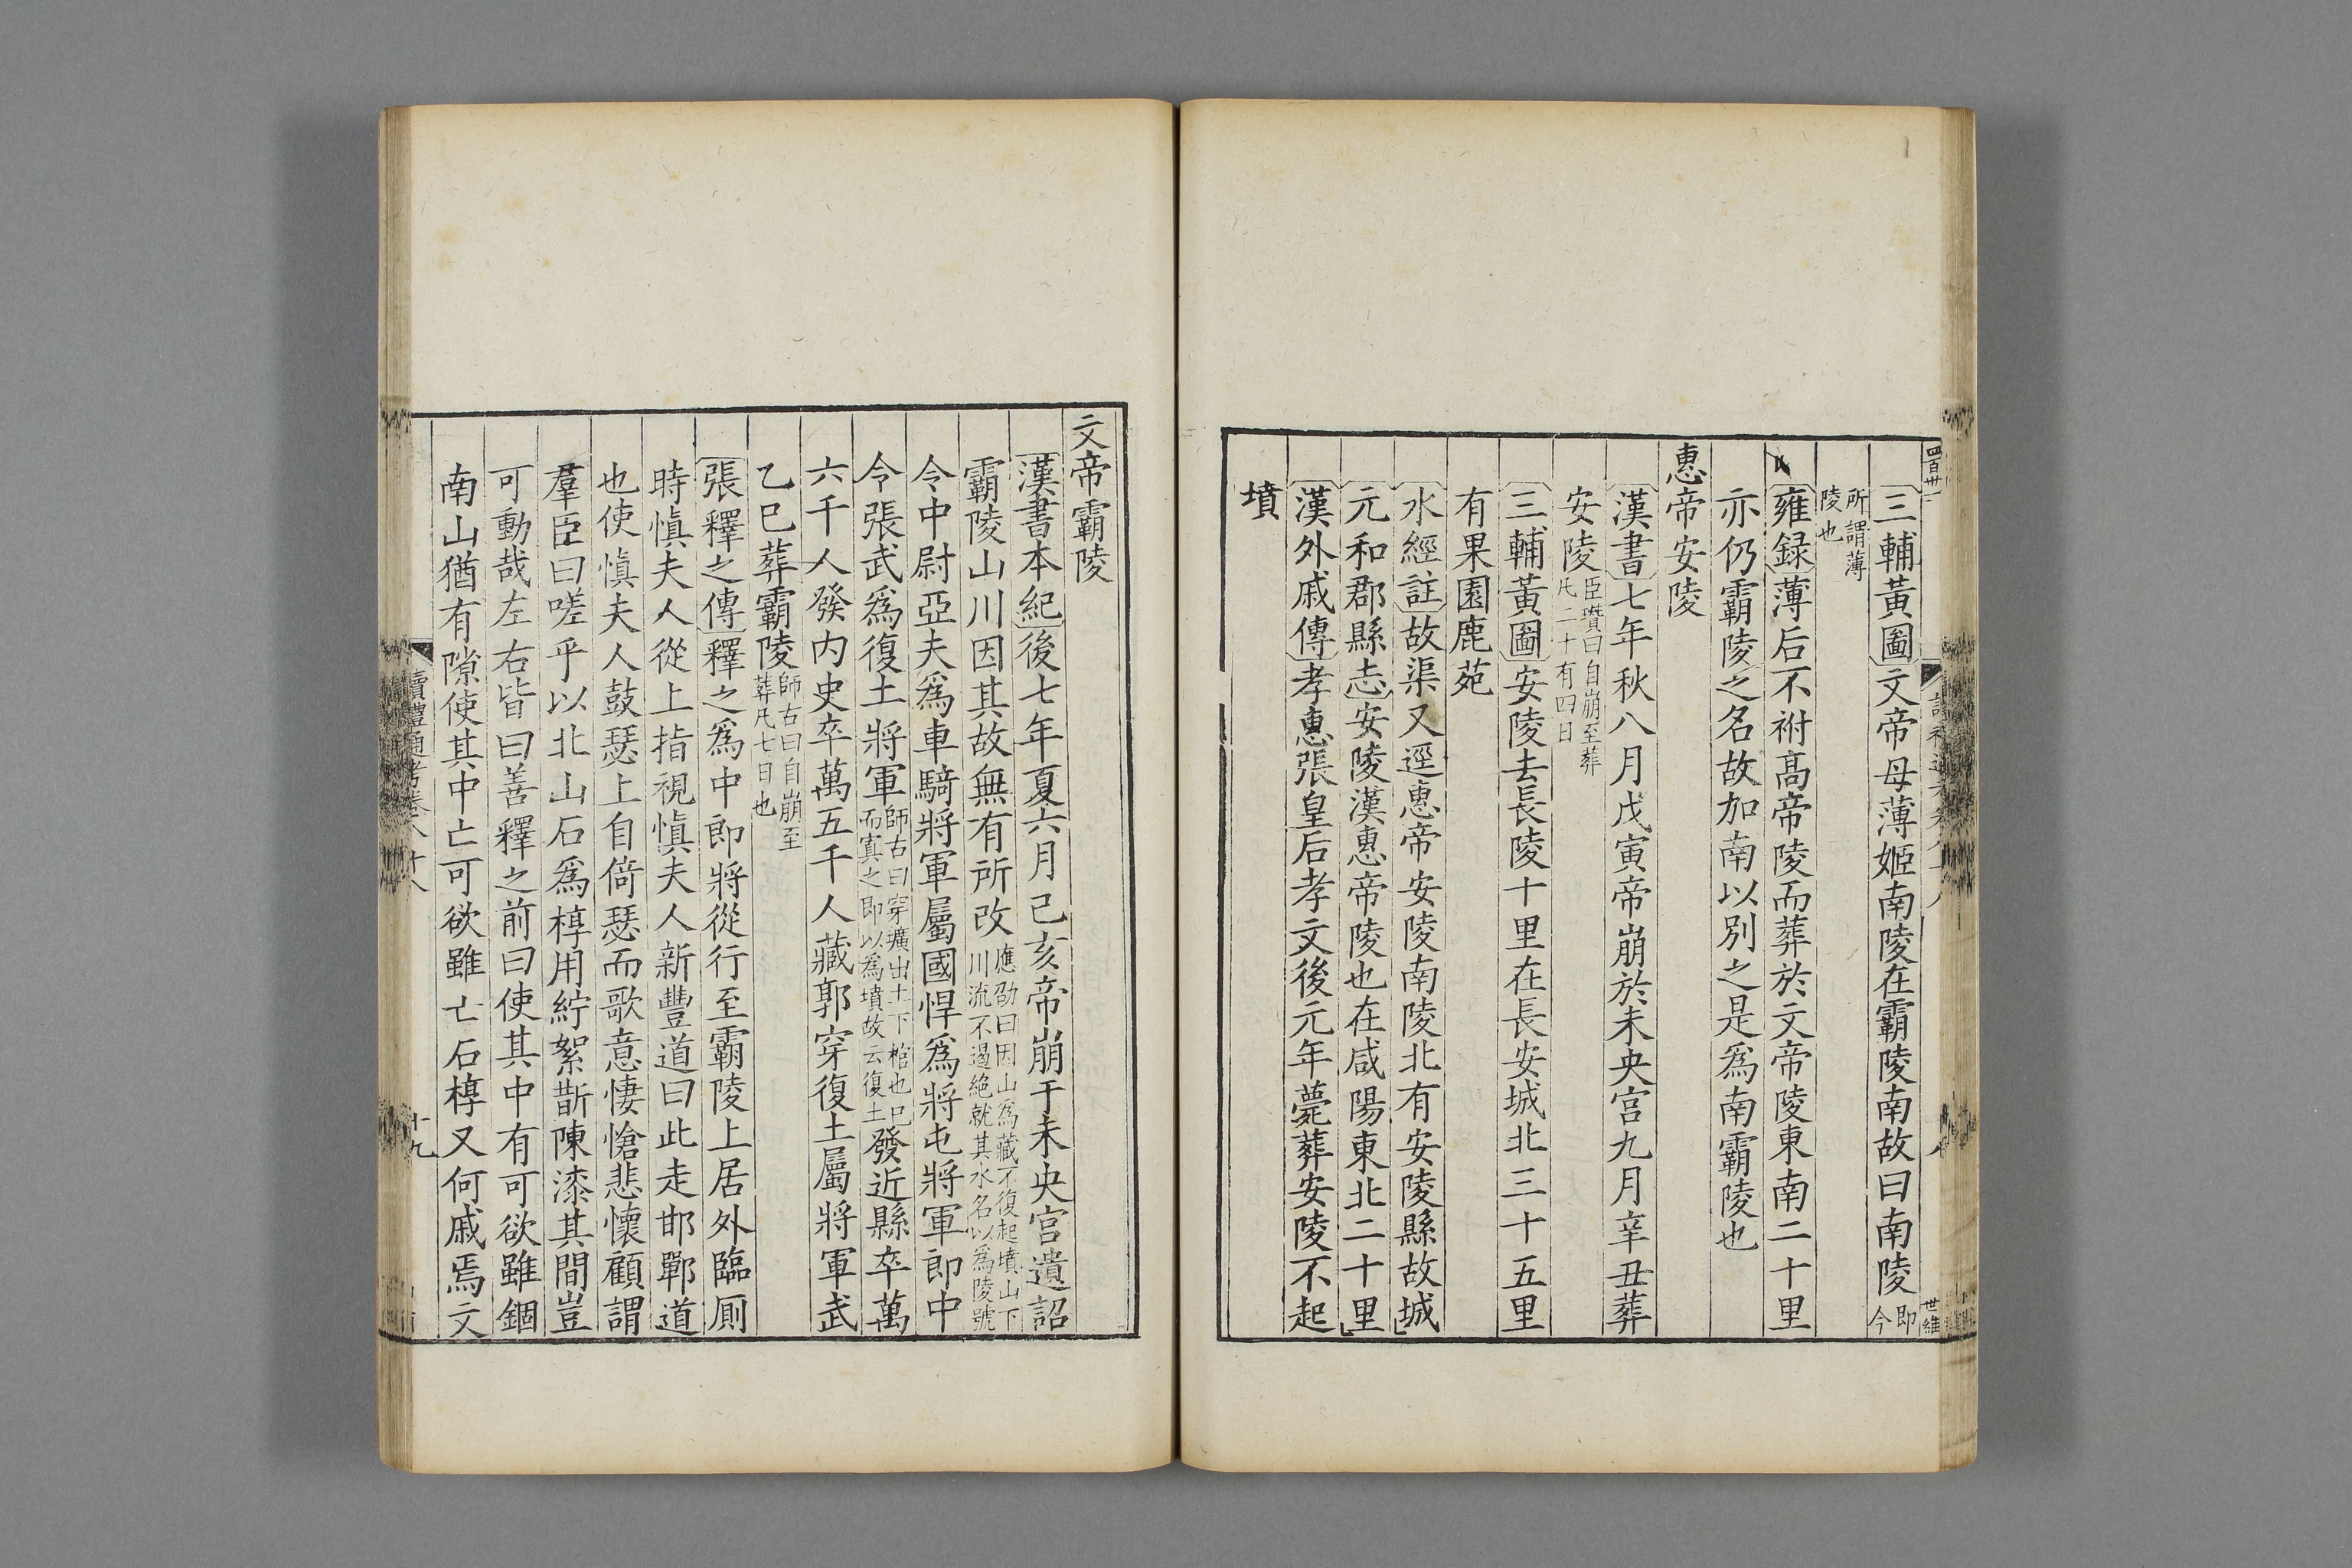 三輔黃圖文帝母薄姬南陵在霸陵南故曰南陵即今
所謂薄陵也
雍録薄后不祔高帝陵而葬於文帝陵東南二十里
亦仍霸陵之名故加南以別之是爲南霸陵也
惠帝安陵
漢書七年秋八月戊寅帝崩於未央宫九月辛丑葬
安陵臣瓚曰自崩至葬凡二十有四日
三輔黃圖安陵去長陵十里在長安城北三十五里
有果園鹿苑
水經註故渠又逕惠帝安陵南陵北有安陵縣故城
元和郡縣志安陵漢惠帝陵也在咸陽東北二十里
漢外戚傳孝惠張皇后孝文後元年薨葬安陵不起
墳
文帝霸陵
漢書本紀後七年夏六月己亥帝崩于未央宫遺詔
霸陵山川因其故無有所改應劭曰因山爲藏不復起墳山下川流不遏絶就其水名以爲陵號
令中尉亞夫爲車騎將軍屬國悍爲將屯將軍郎中
令張武爲復土將軍師古曰穿壙出土下棺也已而窴之即以爲墳故云復土發近縣卒萬
六千人發内史卒萬五千人藏郭穿復土屬將軍武
乙巳葬霸陵師古曰自崩至葬凡七日也
張釋之傳釋之爲中郎將從行至霸陵上居外臨厠
時愼夫人從上指視愼夫人新豐道曰此走邯鄲道
也使愼夫人鼓瑟上自倚瑟而歌意悽愴悲懷顧謂
羣臣曰嗟乎以北山石爲椁用紵絮斮陳漆其間豈
可動哉左右皆曰善釋之前曰使其中有可欲雖錮
南山猶有隙使其中亡可欲雖亡石椁又何戚焉文
讀禮通考卷八十八
十九